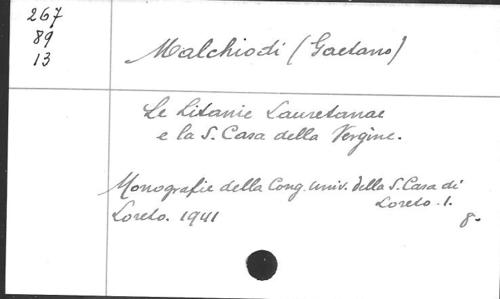 267
89
13
Malchiodi (Gaetano)
Le Litanie Lauretanae
e la S. Casa della Vergine.
Monografie della Cong. univ. della S. Casa di
Loreto. 1.
Loreto. 1941
8-